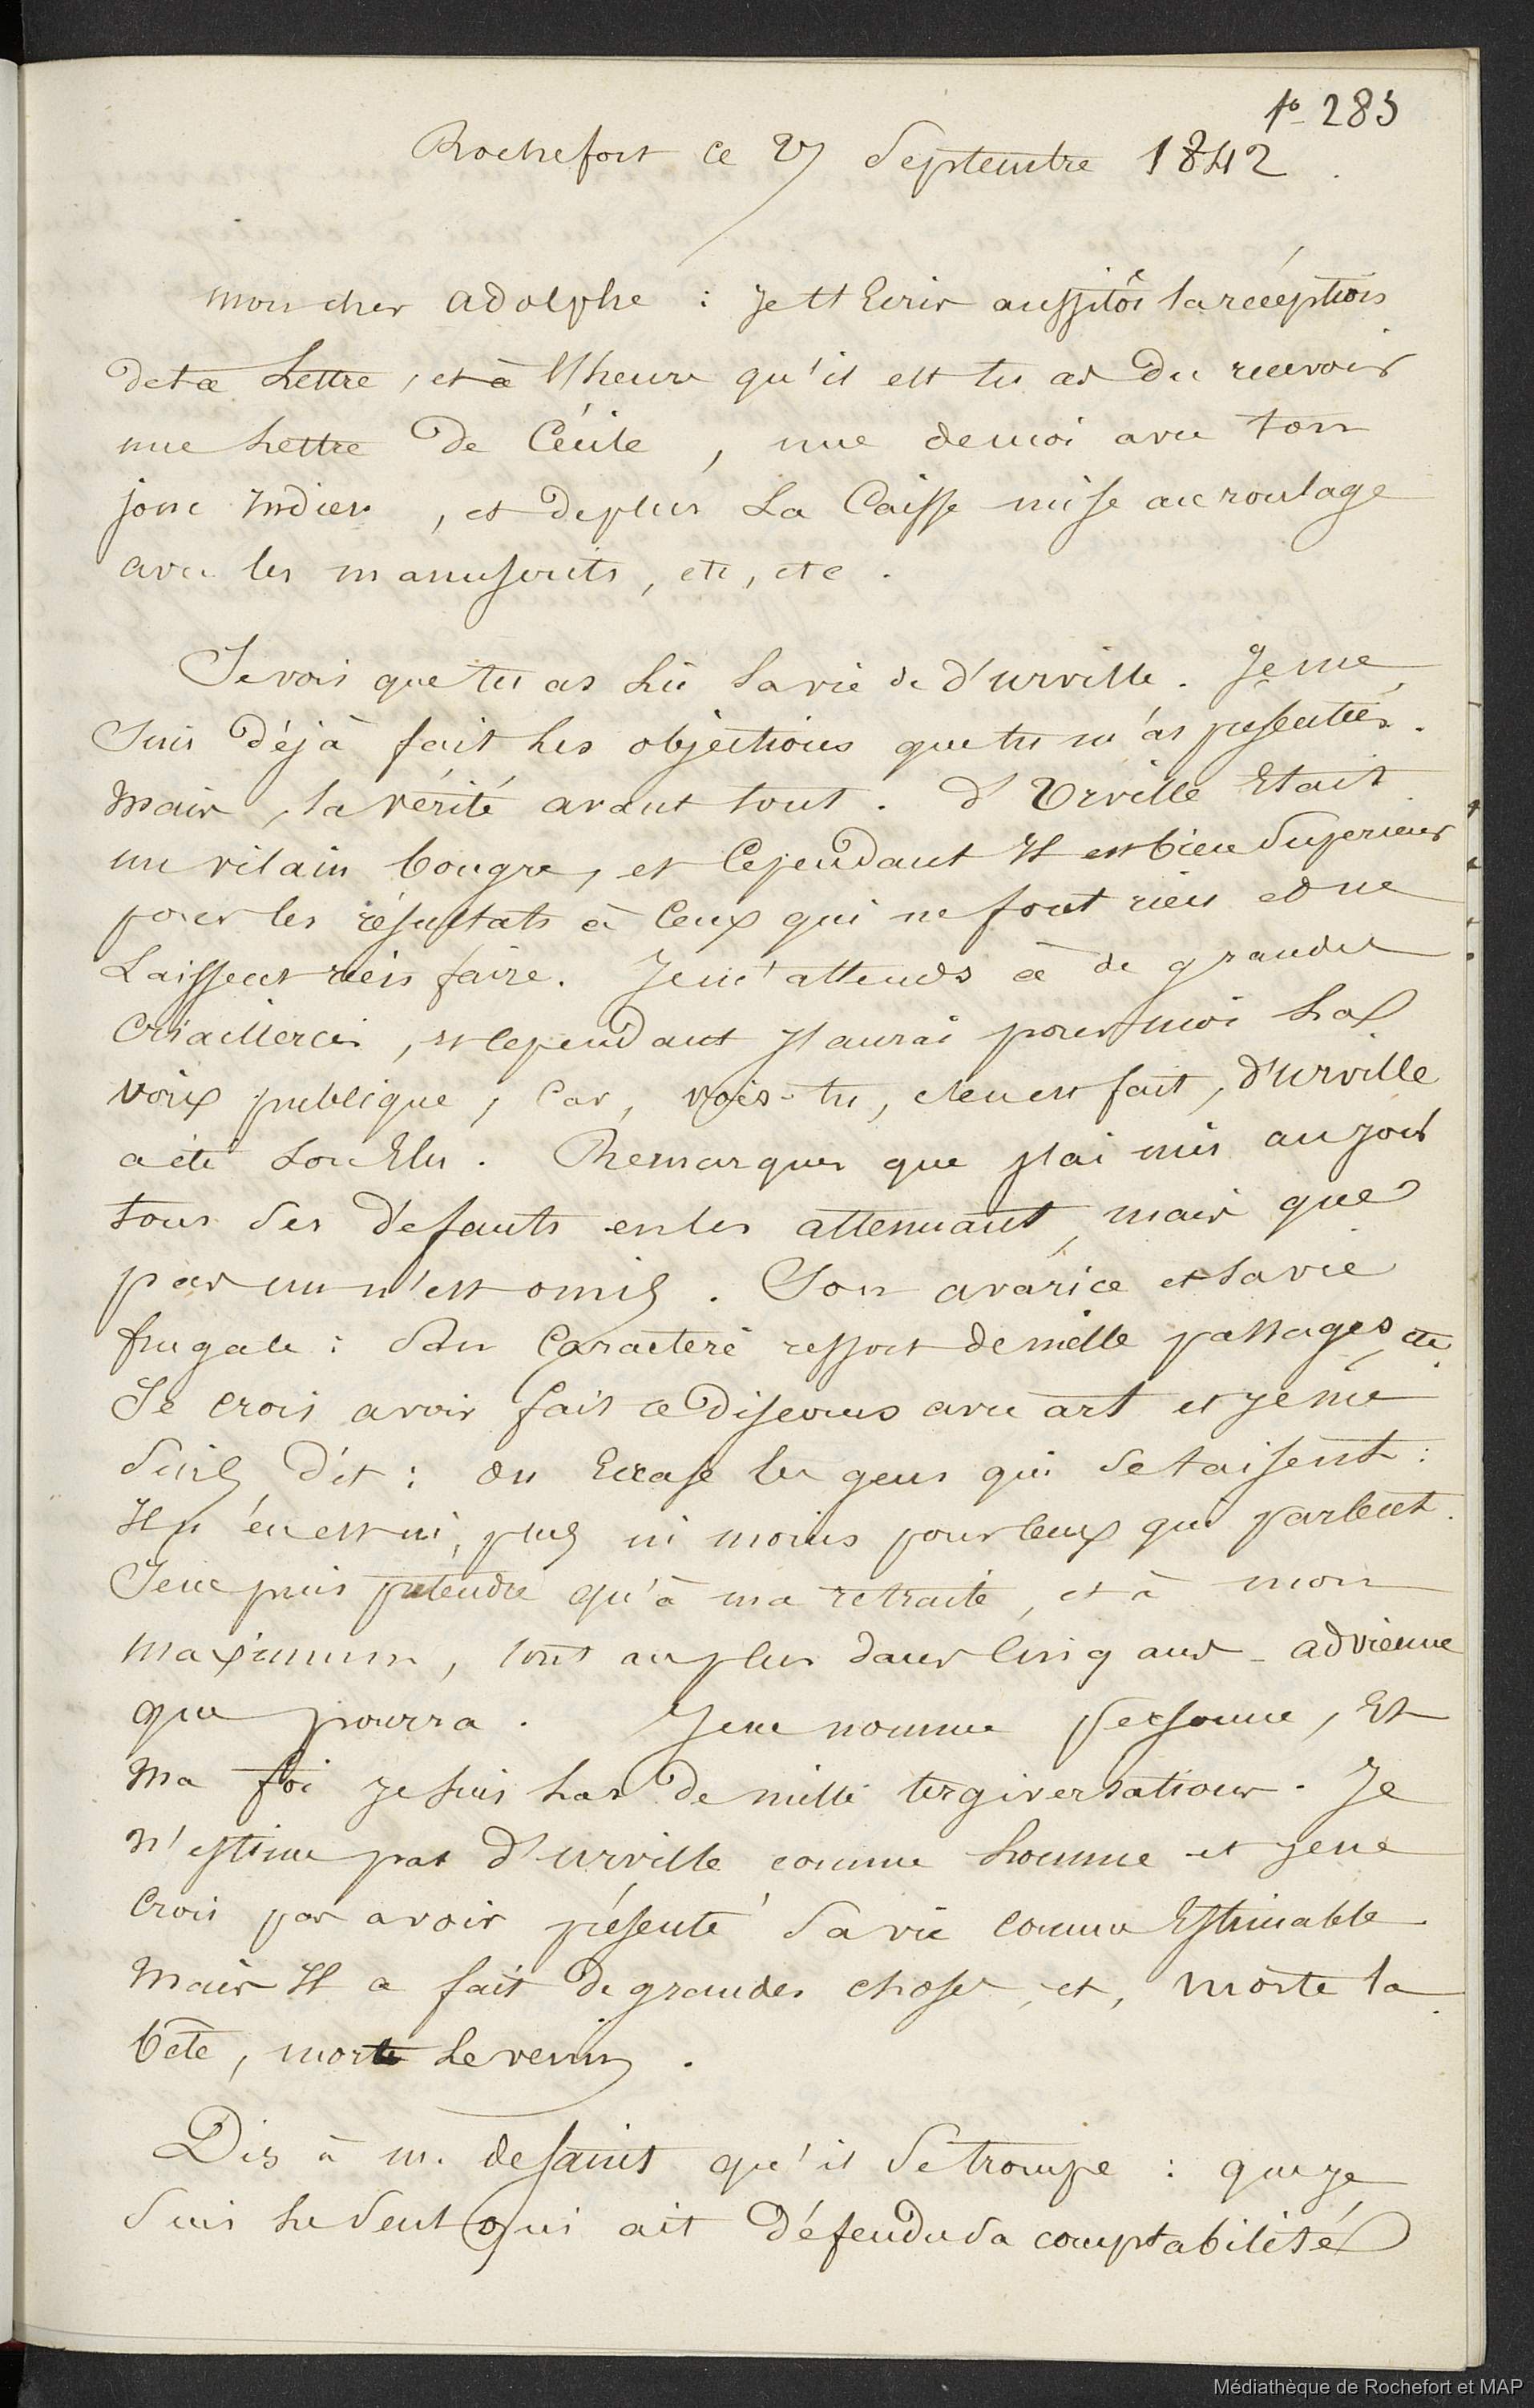 fo 283
Rochefort ce 27 Septembre 1842.
mon cher adolphe : Je t'Ecris aussitôt la réception
de ta Lettre, et à l'heure qu'il est tu as du recevoir
une Lettre de Cécile, une de moi avec ton
jonc Indien, et de plus La Caisse mise au roulage
avec les manuscrits, etc, etc.
Je vois que tu as Lû la vie de d'urville. Je me
suis déjà fait les objections que tu m'as présentées.
Mais, la vérité avant tout. d'Urville Etait
un vilain bougre, et Cependant Il est bien Superieur
pour les résultats à Ceux qui ne font rien et ne
Laissent rien faire. Je m'attends à de grandes
Criailleries, et cependant J'aurai pour moi La
voix publique, Car, vois-tu, c'en est fait, d'urville
a été Son Elu. Remarques que J'ai mis au jour
tous Ses défauts en les attenuant, mais que
pas un n'est omis. Son avarice et sa vie
frugale : Son Caractere ressort de mille passages, etc.
Je Crois avoir fait ce Discours avec art et Je me
Suis dit : on Ecrase les gens qui Se taisent :
Il n'en est ni plus ni moins pour Ceux qui parlent.
Je ne puis prétendre qu'à ma retraite, et à mon
maximum, tout au plus dans Cinq ans - advienne
que pourra. Je ne nomme personne, Et
Ma foi Je suis Las de mille tergiversations. Je
N'estime pas d'urville comme homme et Je ne
Crois pas avoir présenté Sa vie Comme Estimable.
Mais Il a fait de grandes choses, et, Morte la
bête, mort Le venin.
Dis à m. desaint qu'il Se trompe : que Je
Suis Le Seul qui ait défendu Sa comptabilité
Médiathèque de Rochefort et MAP